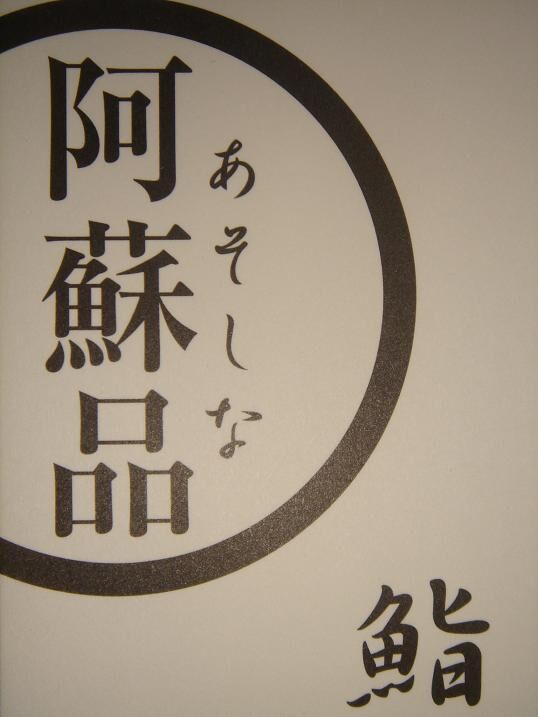 阿蘇品
あそしな
鮨